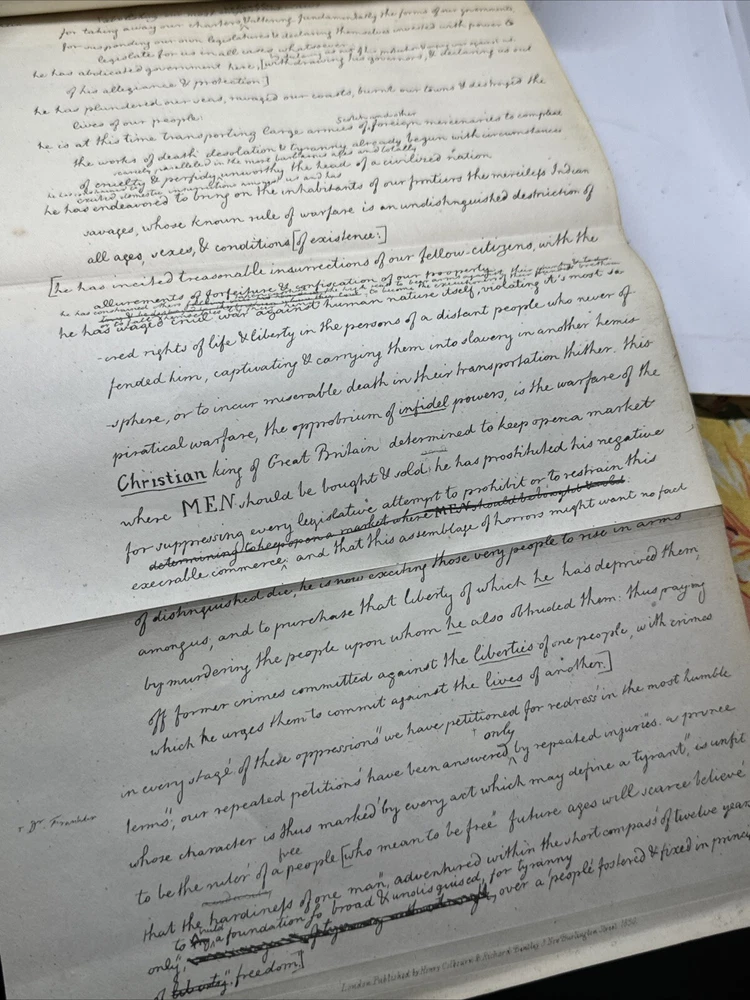 for taking away our charters, & altering fundamentally the forms of our governments,
for suspending our own legislatures & declaring themselves invested with power to
legislate for us in all cases whatsoever
he has abdicated government here, [withdrawing his governors, & declaring us out
of his allegiance & protection:]
he has plundered our seas, ravaged our coasts, burnt our towns & destroyed the
lives of our people:
Scotch and other
he is at this time transporting large armies of foreign mercenaries to compleat
the works of death desolation & tyranny already begun with circumstances
scarcely paralleled in the most barbarous ages and totally
of cruelty & perfidy unworthy the head of a civilized nation
excited domestic insurrections amongst us and has
he has endeavored to bring on the inhabitants of our frontiers the merciless Indian
savages, whose known rule of warfare is an undistinguished destruction of
all ages, sexes, & conditions [of existence:]
[he has incited treasonable insurrections of our fellow-citizens, with the
allurements of forfeiture & confiscation of our property
he has waged cruel war against human nature itself, violating it's most sa-
-cred rights of life & liberty in the persons of a distant people who never of-
fended him, captivating & carrying them into slavery in another hemis-
-sphere, or to incur miserable death in their transportation thither. this
piratical warfare, the opprobrium of infidel powers, is the warfare of the
Christian king of Great Britain determined to keep open a market
where MEN should be bought & sold he has prostituted his negative
for suppressing every legislative attempt to prohibit or to restrain this
determining to keep open a market where MEN should be bought & sold
execrable commerce: and that this assemblage of horrors might want no fact
of distinguished die, he is now exciting those very people to rise in arms
among us, and to purchase that liberty of which he has deprived them,
by murdering the people upon whom he also obtruded them: thus paying
off former crimes committed against the liberties of one people, with crimes
which he urges them to commit against the lives of another.]
in every stage of these oppressions we have petitioned for redress in the most humble
only
terms; our repeated petitions have been answered by repeated injuries. a prince
r Dr. Franklin
whose character is thus marked by every act which may define a tyrant, is unfit
free
to be the ruler of a people [who mean to be free. future ages will scarce believe
that the hardiness of one man, adventured within the short compass of twelve years
to a foundation so broad & undisguised, for tyranny
only, over a people fostered & fixed in princi
of liberty. freedom.]
London, Published by Henry Colburn & Richard Bentley, 8 New Burlington Street, 1830.